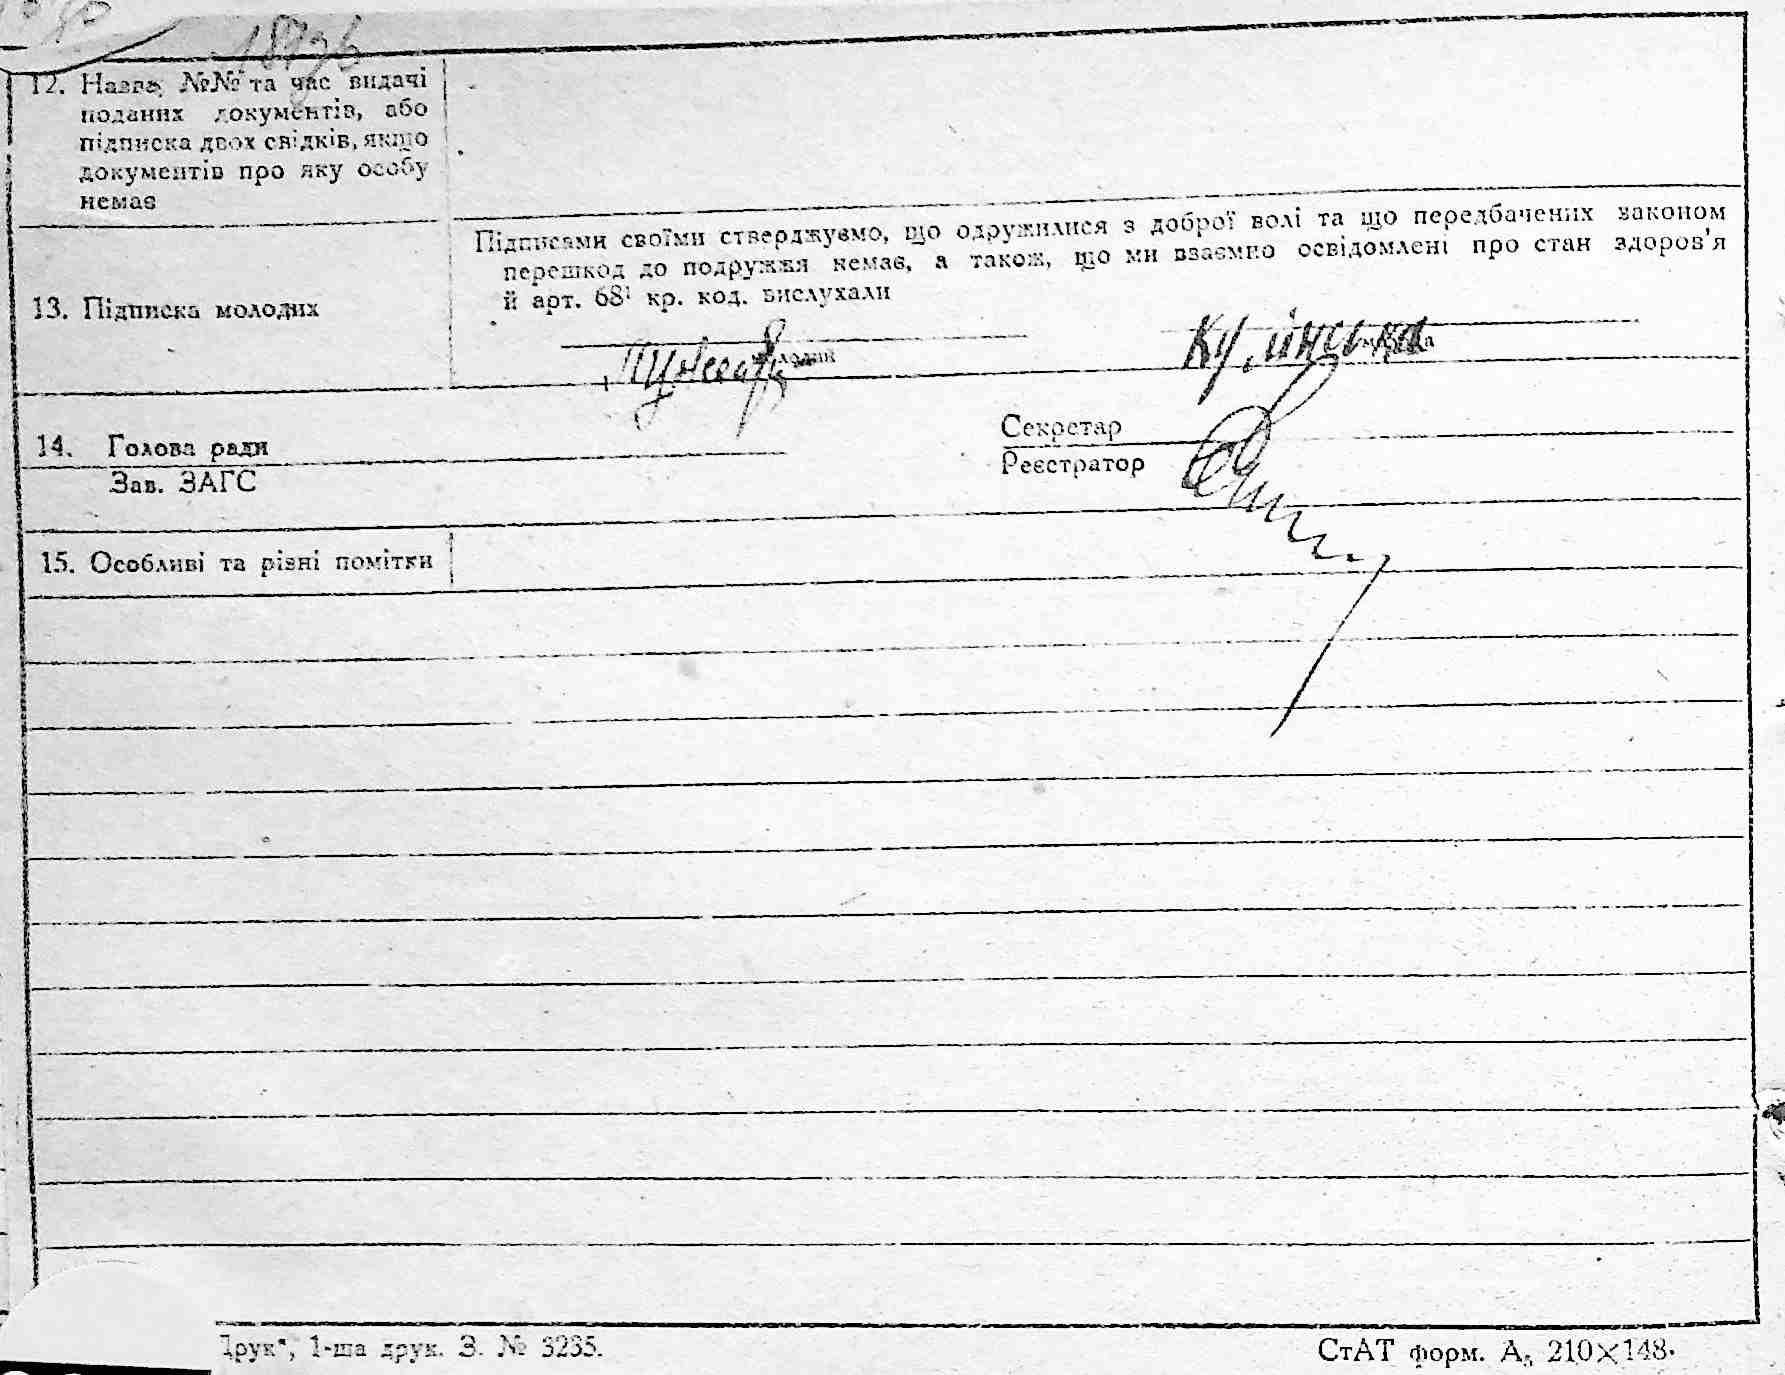 187зв
12. Назва, №№ та час видачі
поданих документів, або
підписка двох свідків, якщо
документів про яку особу
немає
Підписами своїми стверджуємо, що одружилися з доброї волі та що передбачених законом
перешкод до подружжя немає, а також, що ми взаємно освідомлені про стан здоров'я
й арт. 68¹ кр. код. вислухали
13. Підписка молодих
молодий
молода
14. Голова ради
Секретар
Зав. ЗАГС
Реєстратор
15. Особливі та різні помітки
Друк", 1-ша друк. З. № 3235.
СтАТ форм. А₅ 210×148.